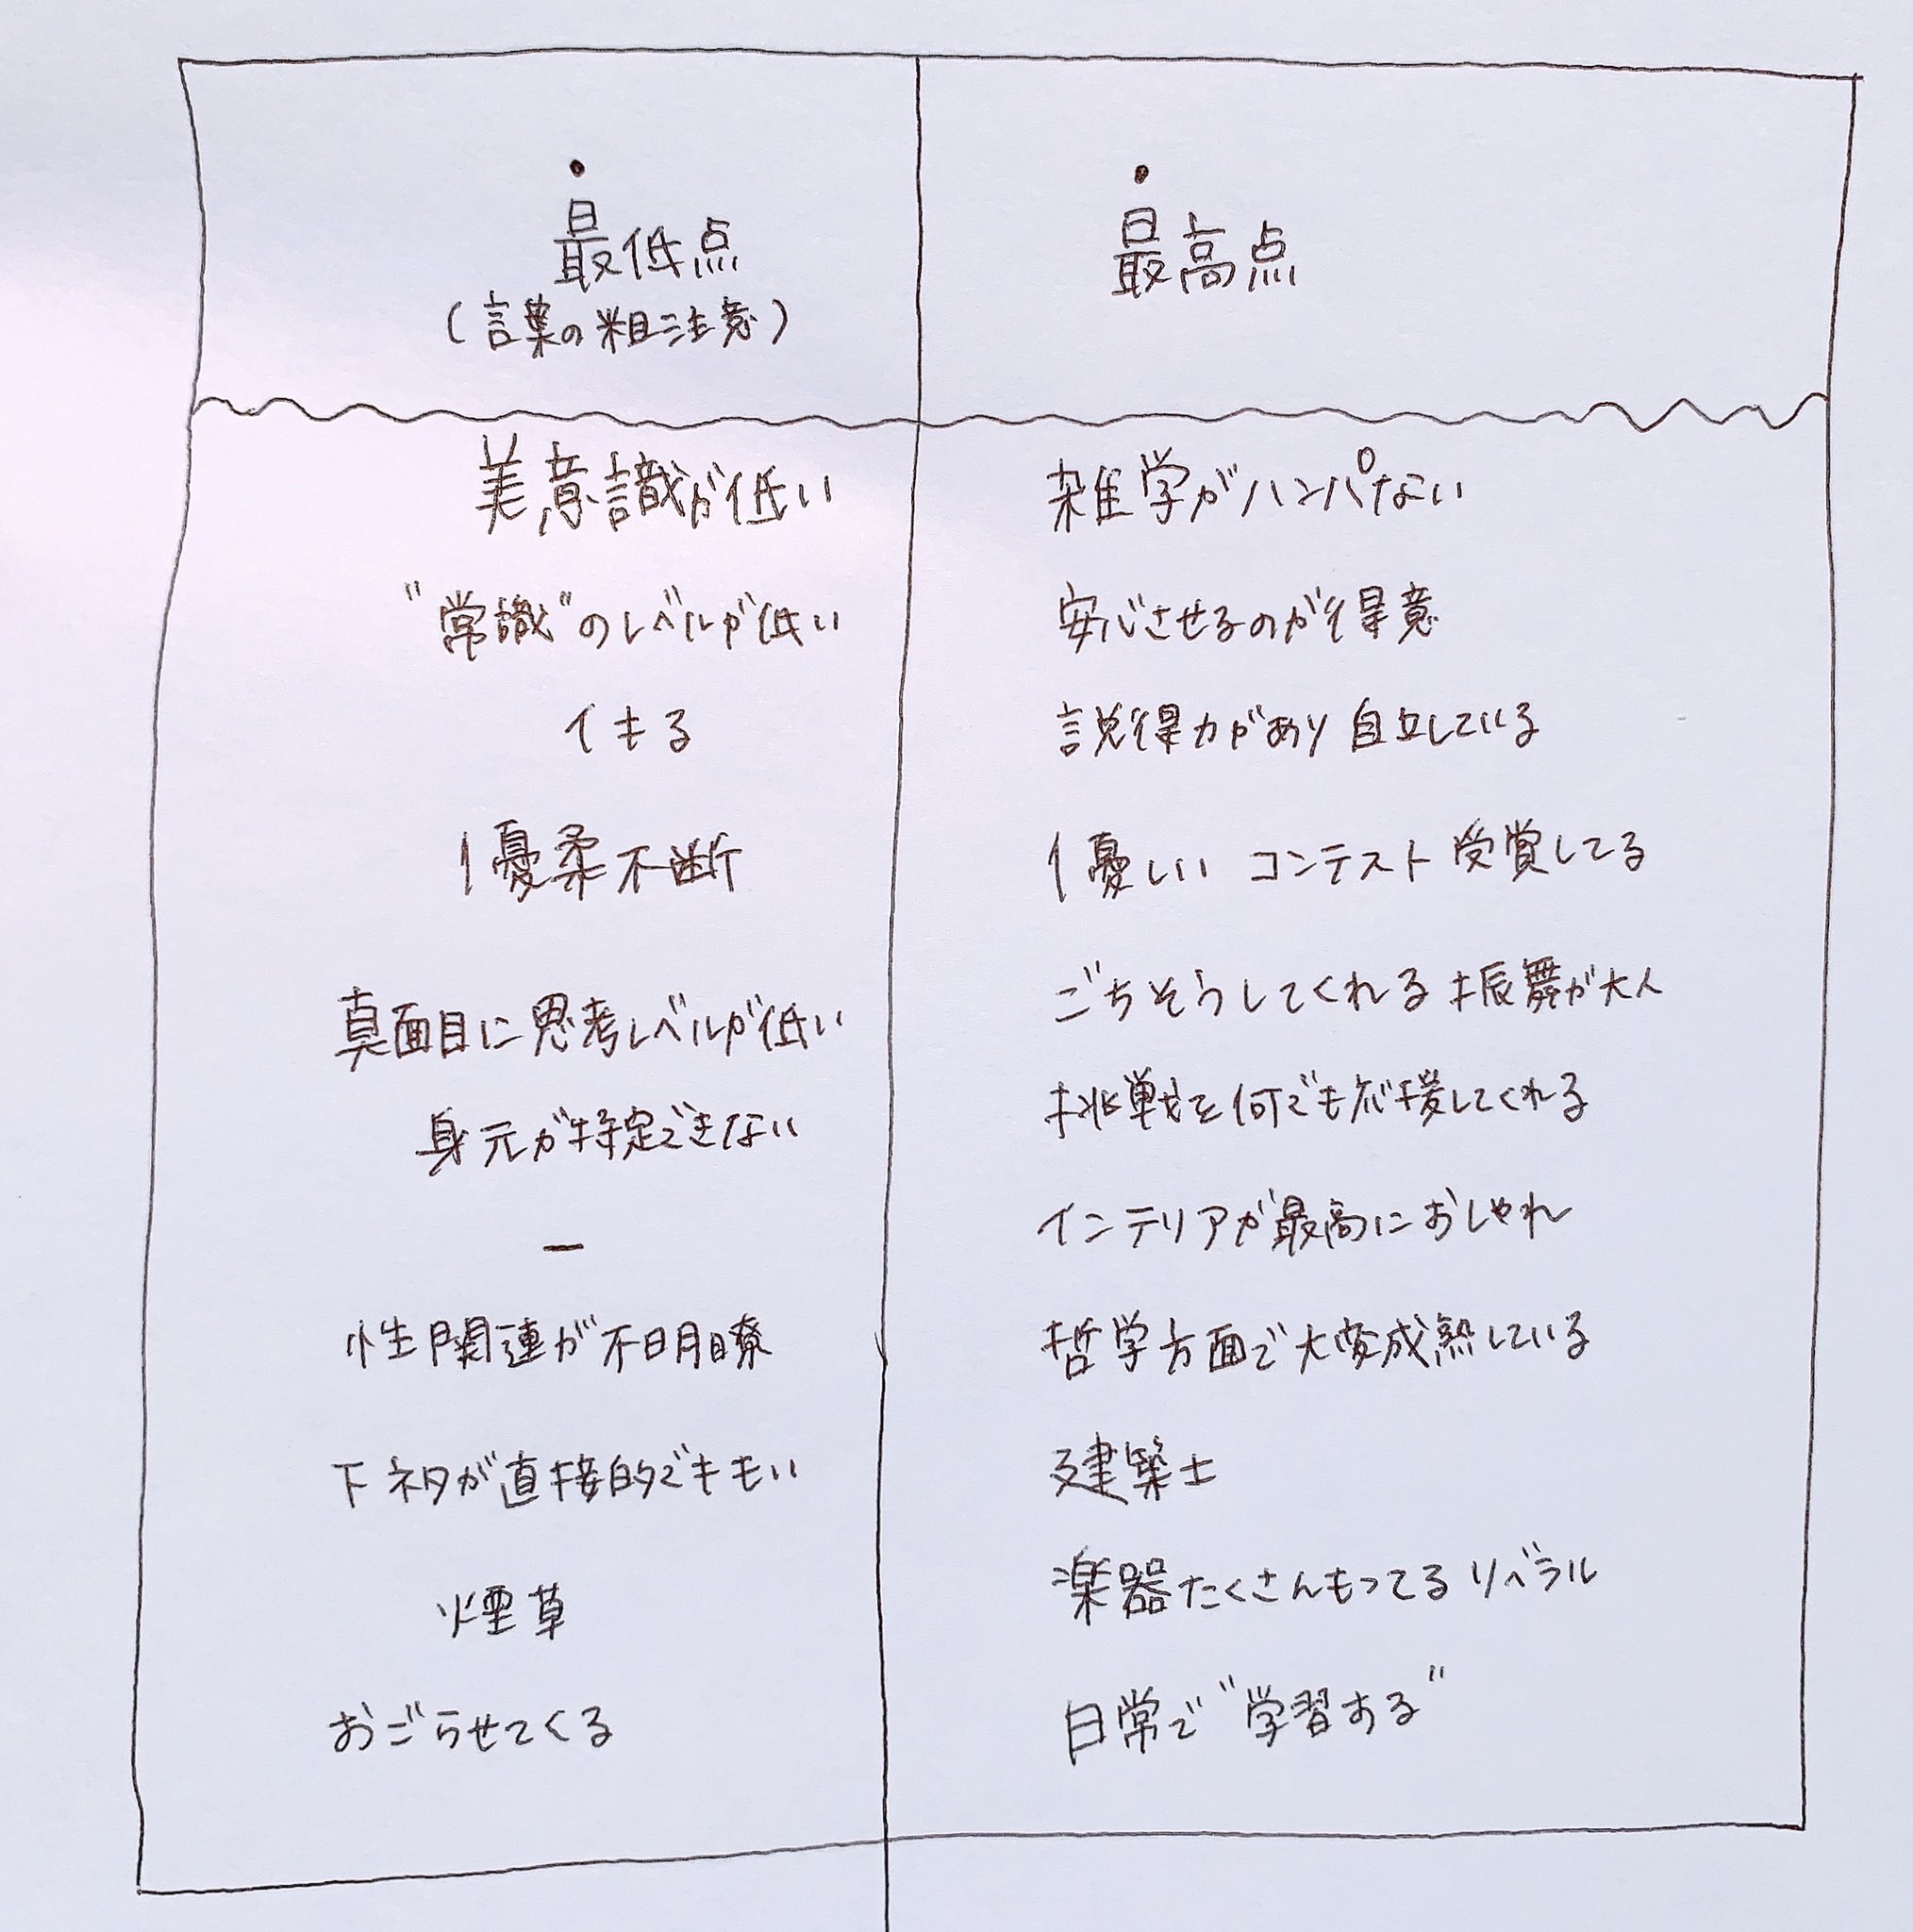 ・
最低点
(言葉の粗注意)
美意識が低い
"常識"のレベルが低い
イキる
優柔不断
真面目に思考レベルが低い
身元が特定できない
ー
性関連が不明瞭
下ネタが直接的でキモい
煙草
おごらせてくる
・
最高点
雑学がハンパない
安心させるのが得意
説得力があり 自立している
優しい コンテスト 受賞してる
ごちそうしてくれる 振舞が大人
挑戦を何でも応援してくれる
インテリアが最高におしゃれ
哲学方面で大変成熟している
建築士
楽器たくさんもってる リベラル
日常で"学習する"